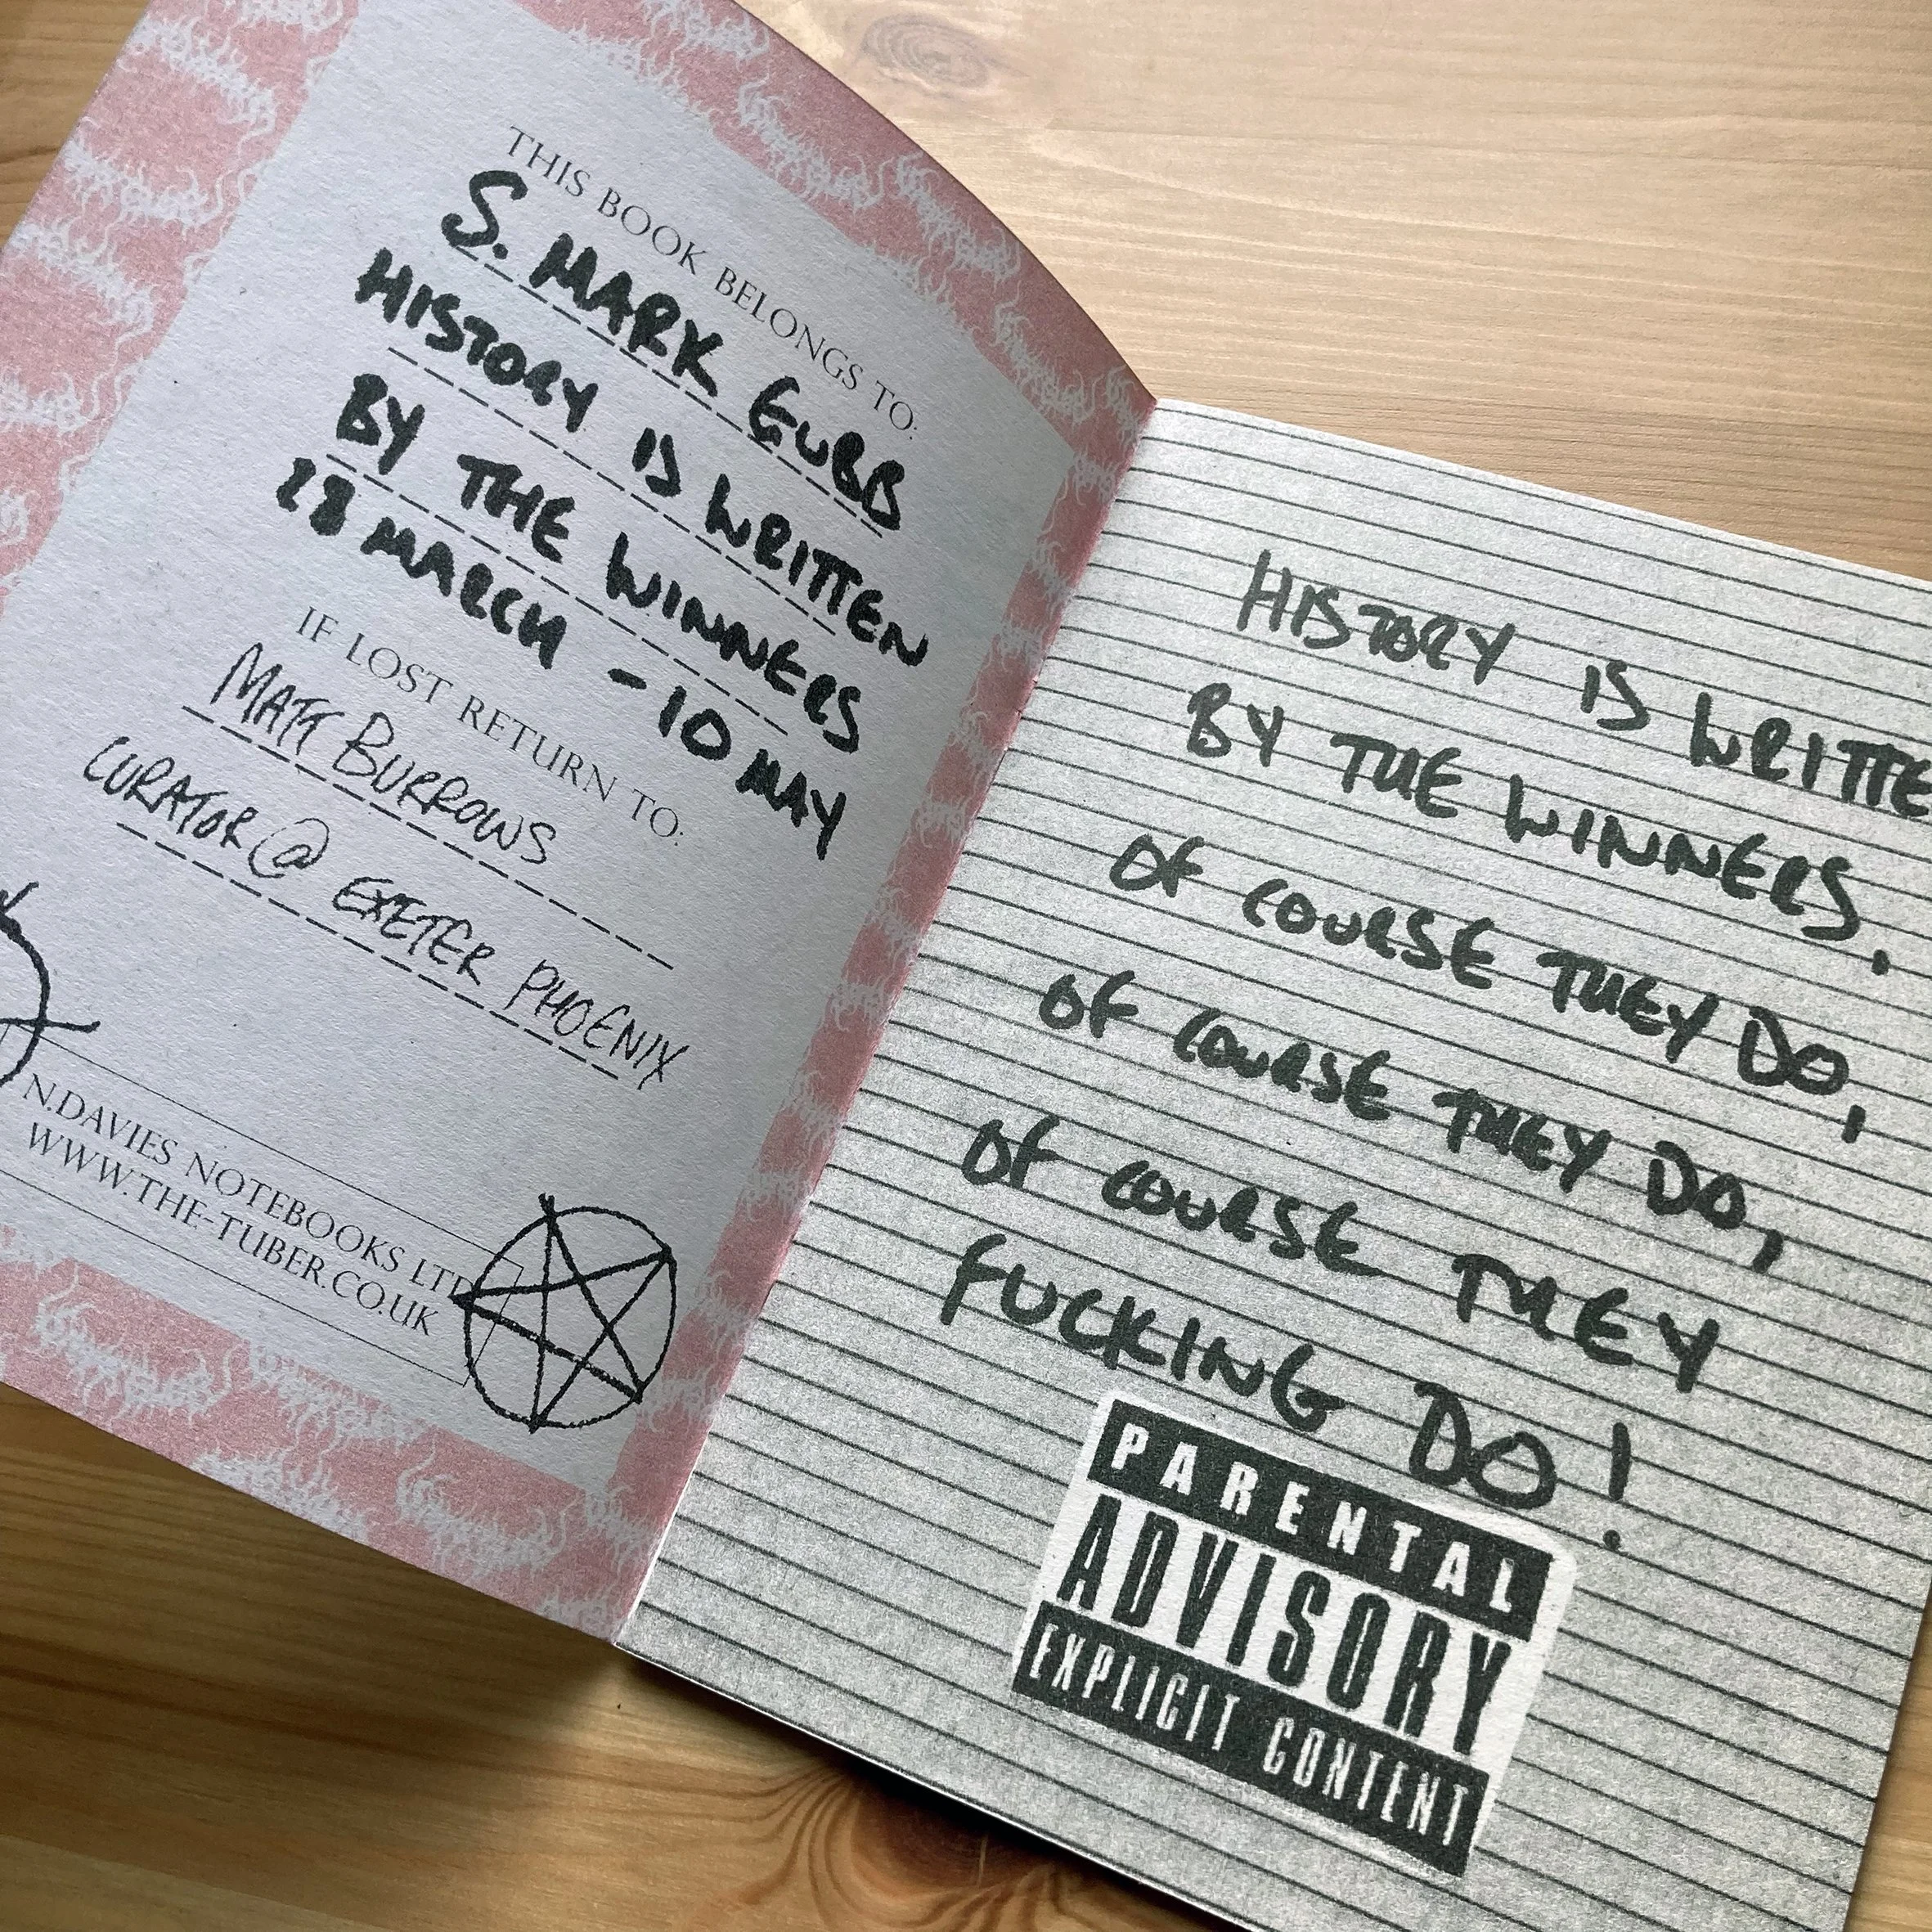 THIS BOOK BELONGS TO:
S. MARK GUBB
HISTORY IS WRITTEN
BY THE WINNERS
28 MARCH - 10 MAY
IF LOST RETURN TO:
MATT BURROWS
CURATOR @ EXETER PHOENIX
N.DAVIES NOTEBOOKS LTD
WWW.THE-TUBER.CO.UK
HISTORY IS WRITTE
BY THE WINNERS.
OF COURSE THEY DO,
OF COURSE THEY DO,
OF COURSE THEY
FUCKING DO!
PARENTAL
ADVISORY
EXPLICIT CONTENT